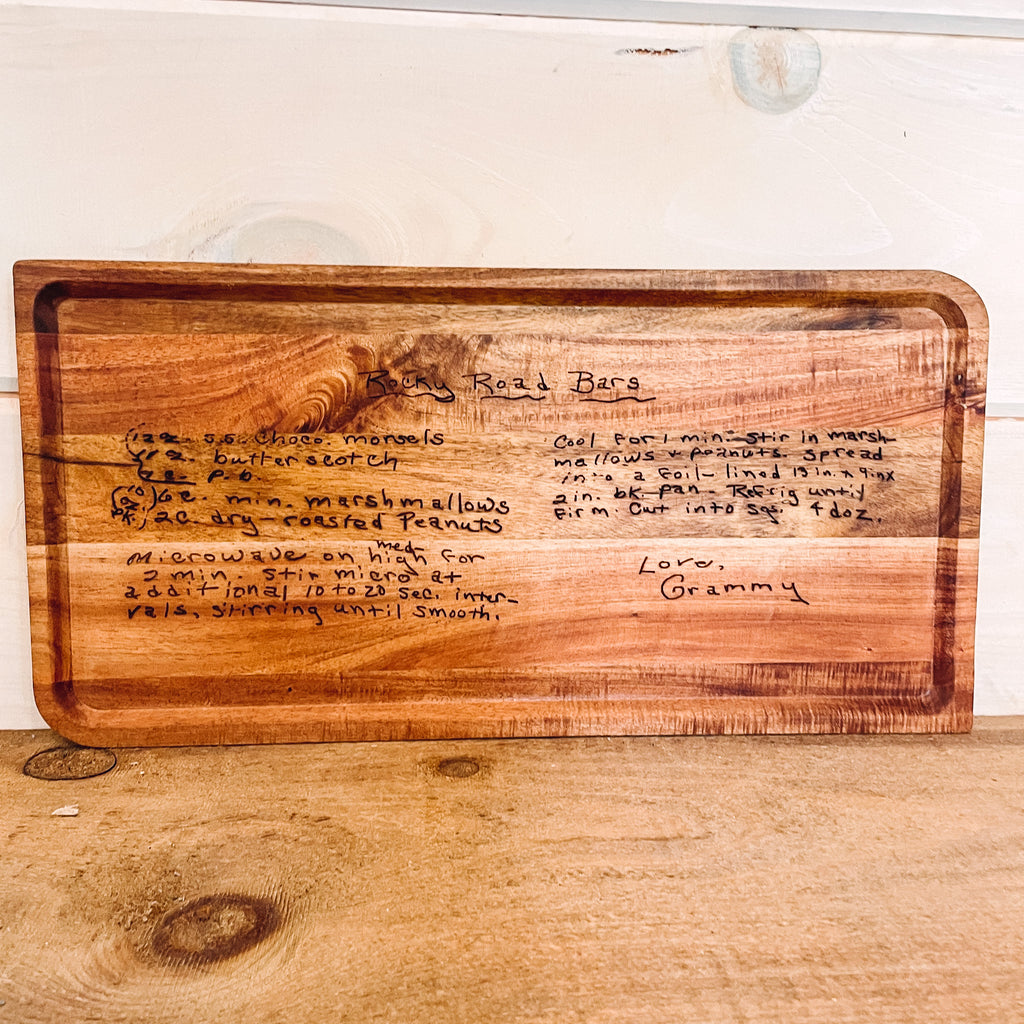 Rocky Road Bars
12 oz. s.s. choco. morsels
butterscotch
p.b.
10 oz pk. 6 c. min. marshmallows
2 c. dry-roasted Peanuts
Microwave on med-high for
2 min. stir micro at
additional 10 to 20 sec. inter-
vals, stirring until smooth.
Cool for 1 min. stir in marsh-
mallows + peanuts. spread
into a foil-lined 13 in. x 9 in x
2 in. bk. pan. Refrig until
firm. Cut into sqs. 4 doz.
Love,
Grammy